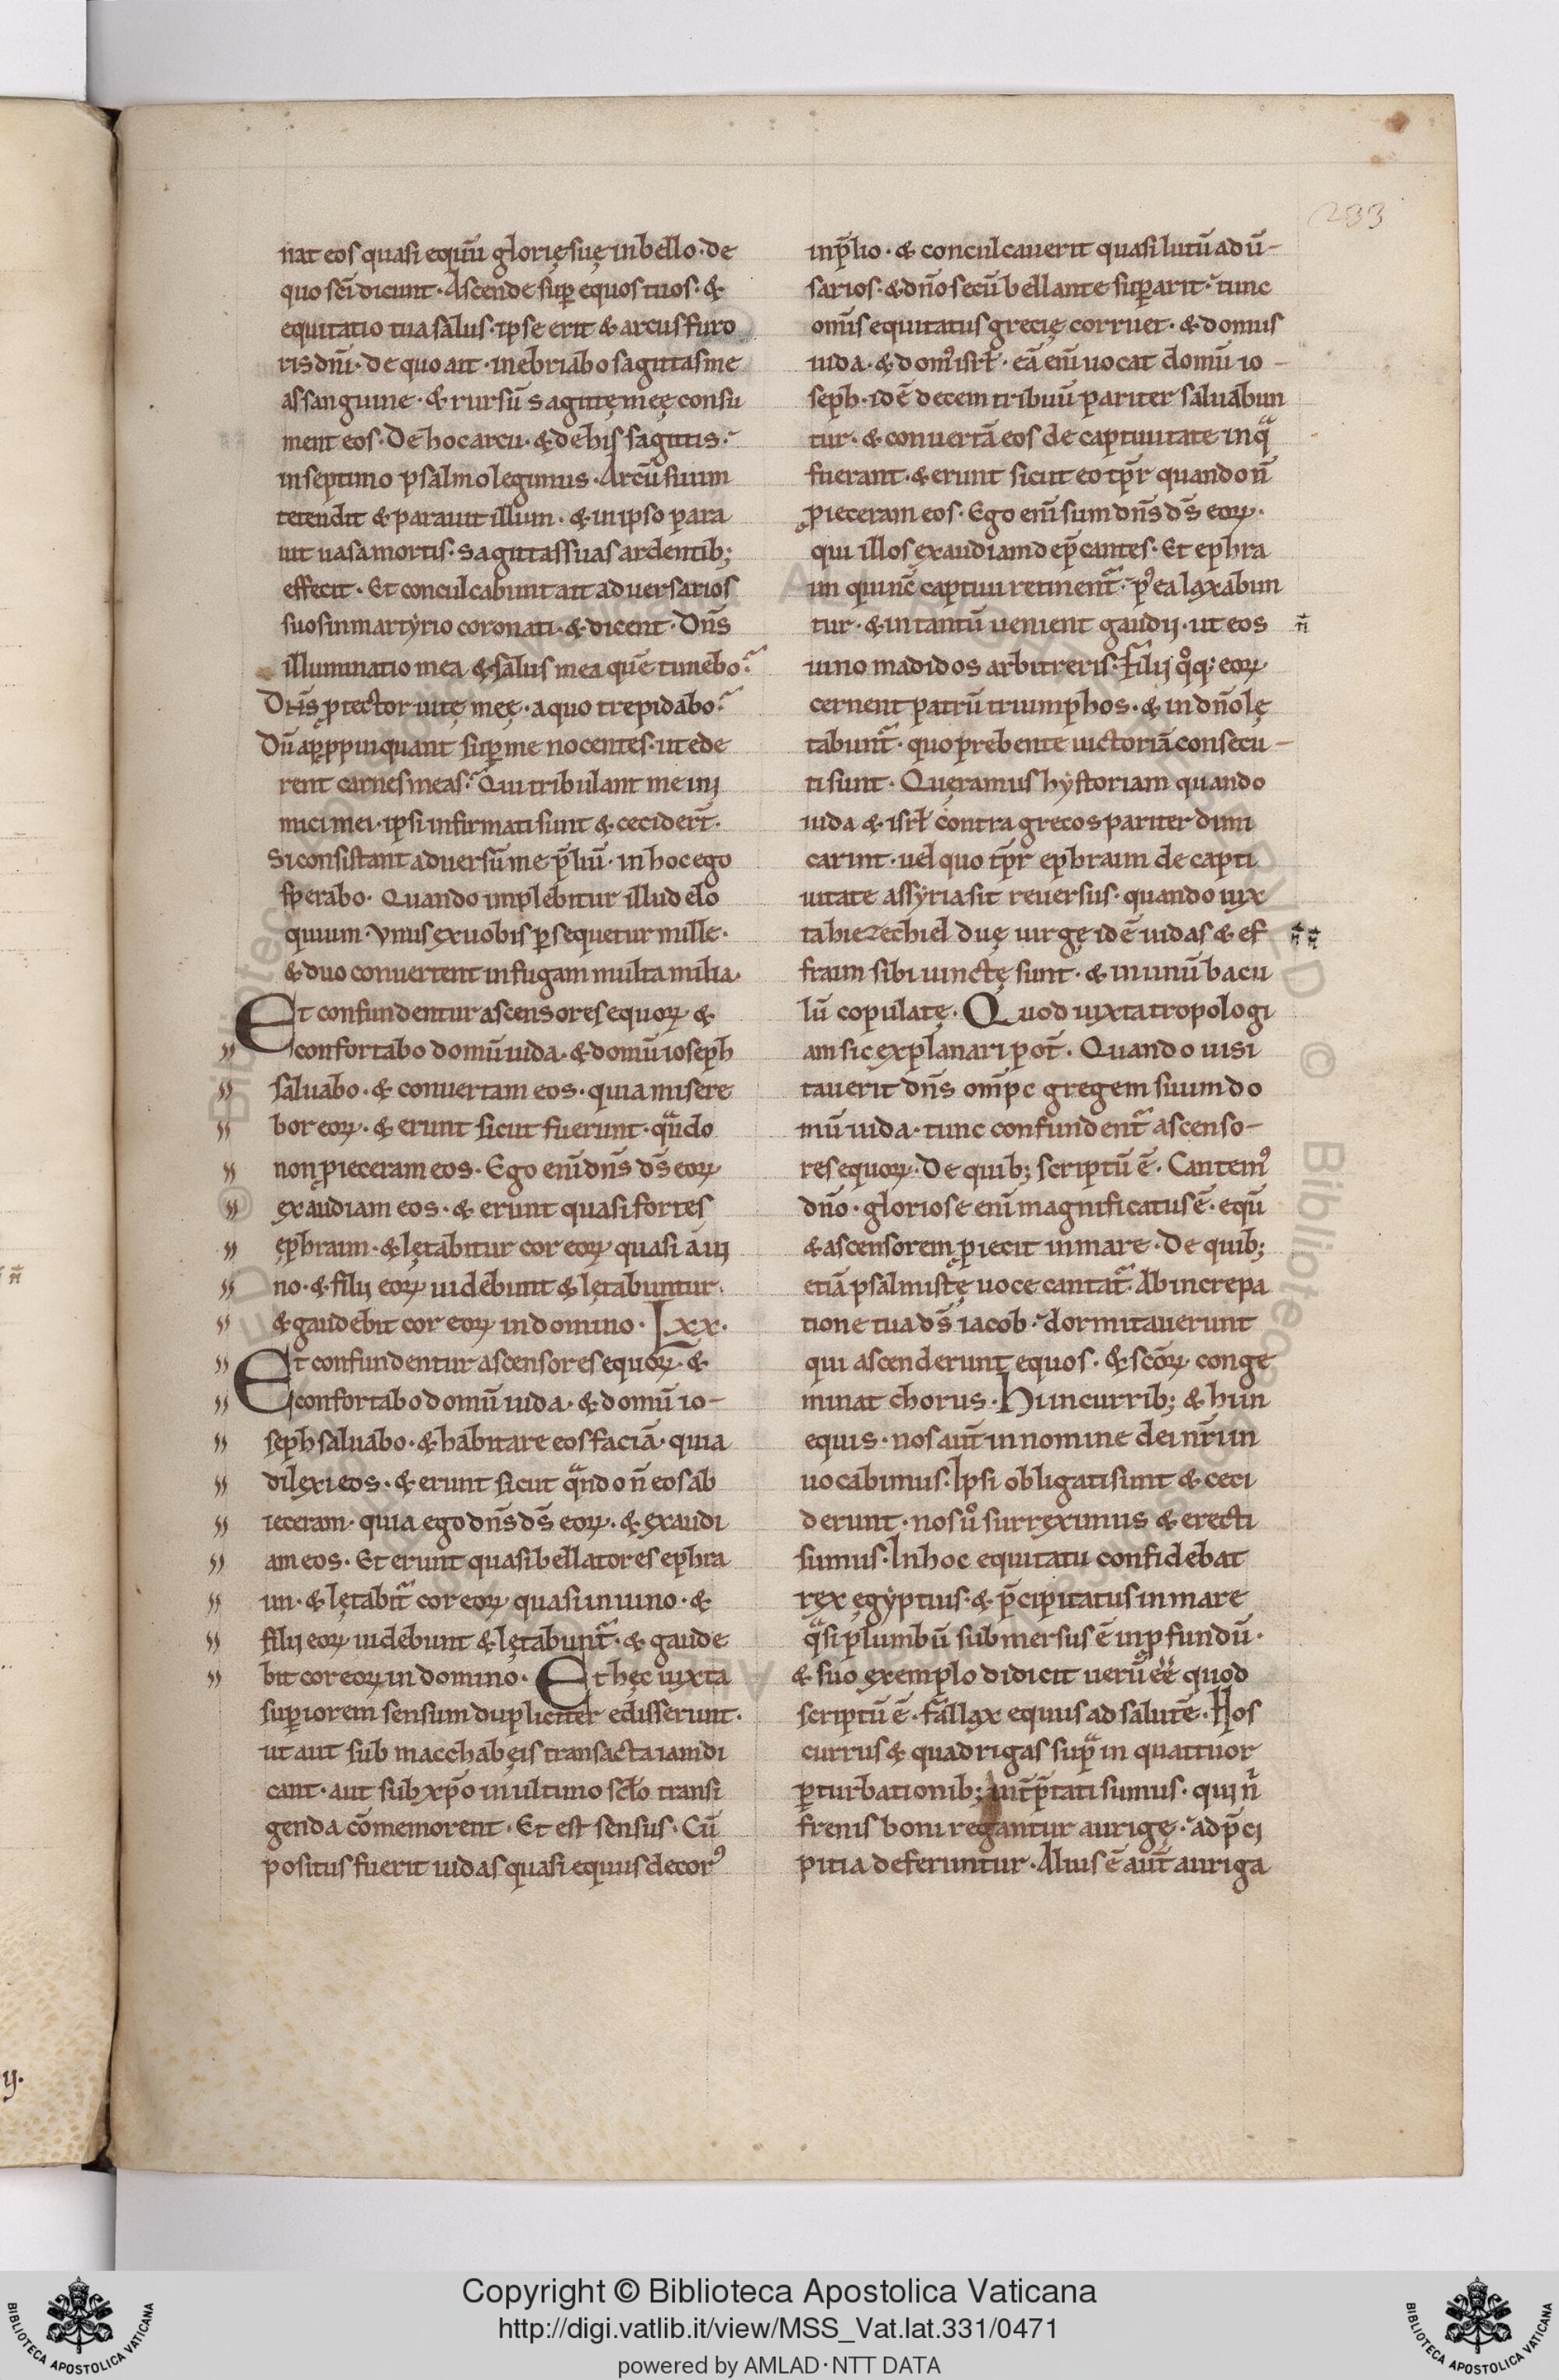 233
nat eos quasi equū glorię suę in bello · de
quo sc̄i dicunt · Ascende suꝑ equos tuos · &
equitatio tua salus · ipse erit & arcus furo
ris dn̄i · de quo ait · inebriabo sagittas me
as sanguine · & rursū sagittę męę consu
ment eos · De hoc arcu · & de his sagittis ·
in septimo psalmo legimus · Arcū suum
tetendit & parauit illum · & in ipso para
uit uasa mortis · sagittas suas ardentib;
effecit · Et conculcabunt ait aduersarios
suos in martyrio coronati · & dicent · Dn̄s
illuminatio mea & salus mea quē timebo ·
Dn̄s ꝓtector uitę meę · a quo trepidabo ·
Dū apꝓpinquant suꝑ me nocentes · ut ede
rent carnes meas · Qui tribulant me inj
mici mei · ipsi infirmati sunt & cecidert̄ ·
Si consistant aduersū me p̄liū · in hoc ego
sperabo · Quando implebitur illud elo
quium · Vnus ex uobis ꝑsequetur mille ·
& duo conuertent in fugam multa milia ·
Et confundentur ascensores equoꝝ &
confortabo domū iuda · & domū ioseph
saluabo · & conuertam eos · quia misere
bor eoꝝ · & erunt sicut fuerunt · qᷓndo
non ꝓieceram eos · Ego eni̅ dn̄s ds̄ eoꝝ
exaudiam eos · & erunt quasi fortes
ephraim · & lętabitur cor eoꝝ quasi a uj
no · & filij eoꝝ uidebunt & lętabuntur ·
& gaudebit cor eoꝝ in domino · Lxx ·
Et confundentur ascensores equoꝝ · &
confortabo domū iuda · & domū io-
seph saluabo · & habitare eos faciā · quia
dilexi eos · & erunt sicut qᷓndo n̄ eos ab
ieceram · quia ego dn̄s ds̄ eoꝝ · & exaudi
am eos · Et erunt quasi bellatores ephra
im · & lętabit᷑ cor eoꝝ quasi in uino · &
filij eoꝝ uidebunt & lętabunt᷑ · & gaude
bit cor eoꝝ in domino · Et hęc iuxta
suꝑiorem sensum dupliciter edisserunt ·
ut aut sub macchabęis transacta iam di
cant · aut sub xp̄o in ultimo sc̄lo transi
genda cōmemorent · Et est sensus · Cū
positus fuerit iudas quasi equus decorꝰ
in p̄lio · & conculcauerit quasi lutū adū-
sarios · & dn̄o secū bellante suꝑarit · tunc
omīs equitatus gręcię corruet · & domus
iuda · & domꝰ isrł · eā eni̅ uocat domū io-
seph · id ē decem tribuū pariter saluabun
tur · & conuertā eos de captiuitate in qᷓ
fuerant · & erunt sicut eo tp̄r quando n̄
ꝓieceram eos · Ego eni̅ sum dn̄s ds̄ eoꝝ ·
qui illos exaudiam dep̄cantes · Et ephra
im qui nc̄ captiui retinent᷑ · pꝰ ea laxabun
tur · & in tantū uenient gaudij · ut eos
uino madidos arbitreris · Filij qͦq; eoꝝ
cernent patrū triumphos · & in dn̄o lę
tabunt᷑ · quo prebente uictoriā consecu-
ti sunt · Quęramus hystoriam quando
iuda & isrł contra grecos pariter dimi
carint · uel quo tp̄r ephraim de capti
uitate assyria sit reuersus · quando iux
ta hiezechiel duę uirgę id ē iudas & ef
fraim sibi iunctę sunt · & in unū bacu
lū copulatę · Quod iuxta tropologi
am sic explanari pot̄ · Quando uisi
tauerit dn̄s omp̄c gregem suum do
mū iuda · tunc confundent᷑ ascenso-
res equoꝝ · De quib; scriptū ē · Cantemꝰ
dn̄o · gloriose eni̅ magnificatus ē · equū
& ascensorem ꝓiecit in mare · De quib;
etiā psalmistę uoce cantat᷑ · Ab increpa
tione tua ds̄ iacob · dormitauerunt
qui ascenderunt equos · & sc̄oꝝ conge
minat chorus · Hi in currib; & hi in
equis · nos aut̄ in nomine dei nr̄i in
uocabimus · Ipsi obligati sunt & ceci
derunt · nos uͦ surreximus & erecti
sumus · In hoc equitatu confidebat
rex egyptius · & p̄cipitatus in mare
qᷓsi plumbū submersus ē in ꝓfundū ·
& suo exemplo didicit uerū eē quod
scriptū ē · fallax equus ad salutē · Hos
currus & quadrigas supᷓ in quattuor
ꝑturbationib; int̄p̄tati sumus · qui nͥ
frenis boni regantur aurigę · ad p̄cj
pitia deferuntur · Alius ē aut̄ auriga
Copyright © Biblioteca Apostolica Vaticana
http://digi.vatlib.it/view/MSS_Vat.lat.331/0471
powered by AMLAD · NTT DATA
BIBLIOTECA APOSTOLICA VATICANA
BIBLIOTECA APOSTOLICA VATICANA